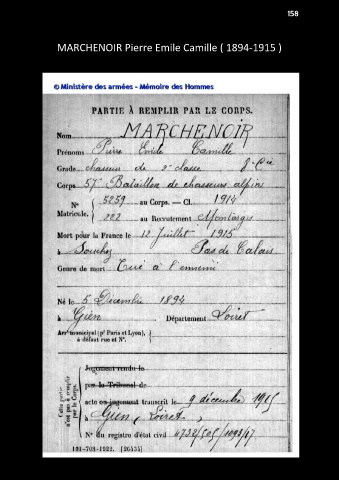 158
MARCHENOIR Pierre Emile Camille ( 1894-1915 )
© Ministère des armées - Mémoire des Hommes
PARTIE À REMPLIR PAR LE CORPS.
Nom MARCHENOIR
Prénoms Pierre Emile Camille
Grade chasseur de 2e classe 8e Cie
Corps 57 Bataillon de chasseurs alpins
N° 5259 au Corps. — Cl. 1914
Matricule. 222 au Recrutement Montargis
Mort pour la France le 12 Juillet 1915
à Souchez Pas de Calais
Genre de mort Tué à l'ennemi
Né le 5 Décembre 1894
à Gien Département Loiret
Arrt municipal (pr Paris et Lyon),
à défaut rue et N°.
Cette partie
n'est pas à remplir
par le Corps.
Jugement rendu le
par le Tribunal de
acte ou jugement transcrit le 9 décembre 1915
à Gien (Loiret)
N° du registre d'état civil
101-708-1922. [26434]